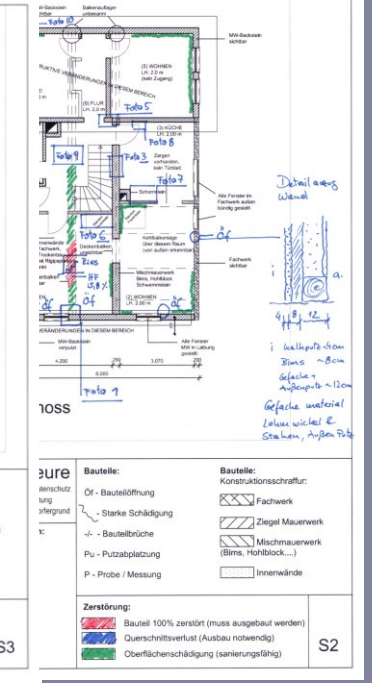 Balkenauflager
unbekannt
MW-Backstein
sichtbar
Foto 10
(5) WOHNEN
LH. 2,0 m
(kein Zugang)
VERÄNDERUNGEN IN DIESEM BEREICH
(6) FLUR
LH. 2,0 m
Foto 5
(3) KÜCHE
LH. 2,00 m
Foto 8
Foto 9
Foto 3
Zargen
vorhanden,
kein Türblatt
Foto 7
Schornstein
Alte Fenster im
Fachwerk außen
bündig gesetzt
Detail auszug
Wand
Foto 6
Deckenbalken
Kehlbalkenlage
über diesem Raum
(von außen erkennbar)
Öf
Fachwerk
sichtbar
Mischmauerwerk
Bims, Hohlblock,
Schwemmstein
Öf
(2) WOHNEN
LH. 2,00 m
Öf
i
a.
4 8 12
VERÄNDERUNGEN IN DIESEM BEREICH
MW-Backstein
verputzt
Alte Fenster
MW in Laibung
gesetzt
Foto 1
Bims ~8cm
Gefache +
Außenputz ~12cm
Gefache material
Lehm wickel &
Staken, Außen Putz
hoss
eure
Bauteile:
Öf - Bauteilöffnung
- Starke Schädigung
-/- - Bauteilbrüche
Pu - Putzabplatzung
P - Probe / Messung
Bauteile:
Konstruktionsschraffur:
Fachwerk
Ziegel Mauerwerk
Mischmauerwerk
(Bims, Hohlblock....)
Innenwände
Zerstörung:
Bauteil 100% zerstört (muss ausgebaut werden)
Querschnittsverlust (Ausbau notwendig)
Oberflächenschädigung (sanierungsfähig)
S3
S2